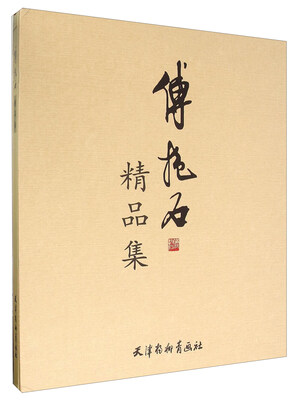 傅抱石
精品集
天津杨柳青画社